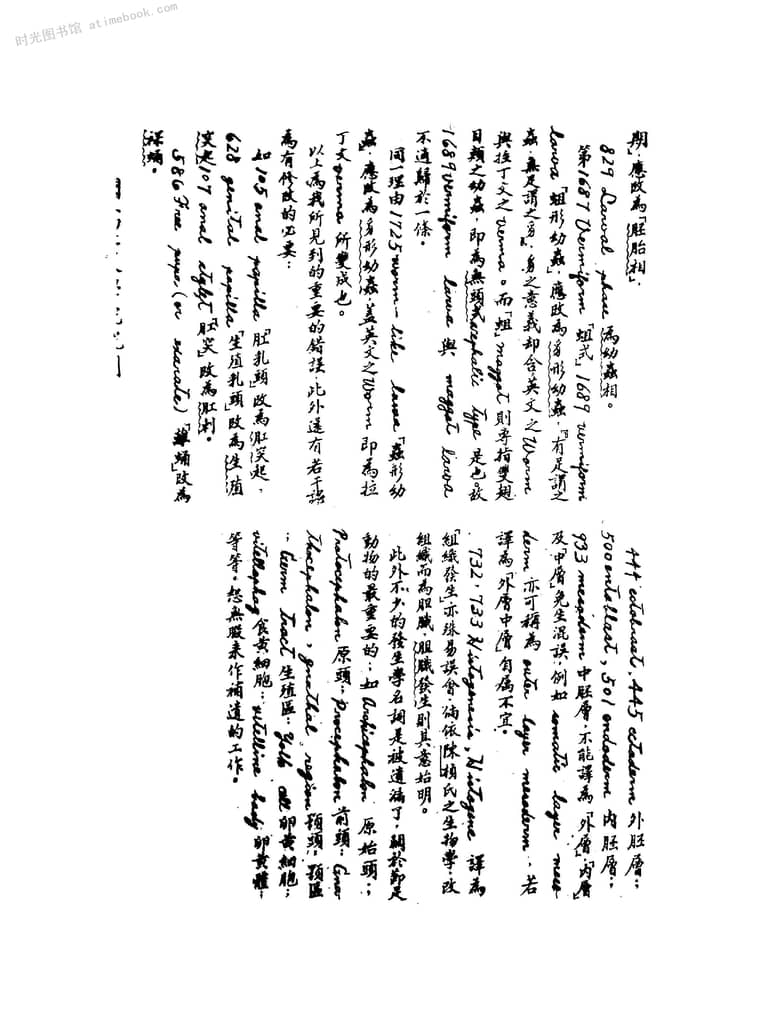 时光图书馆 atimebook.com
期」應改為「胚胎相」.
829 Larval phase 為幼蟲相。
第1687 Vermiform 「蛆式」1689 vermiform
larva 「蛆形幼蟲」應改為身形幼蟲,「有足謂之
蟲,無足謂之豸」,豸之意義却含英文之 Worm
與拉丁文之 verma。而「蛆」maggot 則專指雙翅
目類之幼蟲,即為無頭 Acephalic type 是也。故
1689 vermiform larva 與 maggot larva
不適歸於一條。
同一理由 1725 worm-like larva 「蟲形幼
蟲」應改為豸形幼蟲,盖英文之 Worm 即為拉
丁文 verma 所變成也。
以上為我所見到的重要的錯誤,此外還有若干認
為有修改的必要:
如 105 anal papilla 「肛乳頭」改為肛突起,
628 genital papilla 「生殖乳頭」改為生殖
突起 107 anal stylet 「肛突」改為肛刺。
586 Free pupa (or exarate) 「蛹」改為
裸蛹。
444 ectoblast, 445 ectoderm 外胚層;
500 entoblast, 501 endoderm 內胚層;
933 mesoderm 中胚層,不能譯為「外層」「內層」
及「中層」免生混誤,例如 somatic layer meso
derm 亦可稱為 outer layer mesoderm,若
譯為「外層中層」自属不宜。
732, 733 Histogenesis, Histogene 譯為
「組織發生」亦殊易誤會,倘依陳楨氏之生物學,改
組織而為胆臓,胆臓發生則其意始明。
此外不少的發生學名詞是被遺漏了,關於節足
動物的最重要的;如 Archicephalon 原始頭;
Protocephalon 原頭; Procephalon 前頭; Gna-
thocephalon, gnathal region 顎頭,顎區
; Germ tract 生殖區; Yolk cell 卵黄細胞;
vitellophag 食黄細胞; vitelline body 卵黄體;
等等。恕無暇来作補遺的工作。